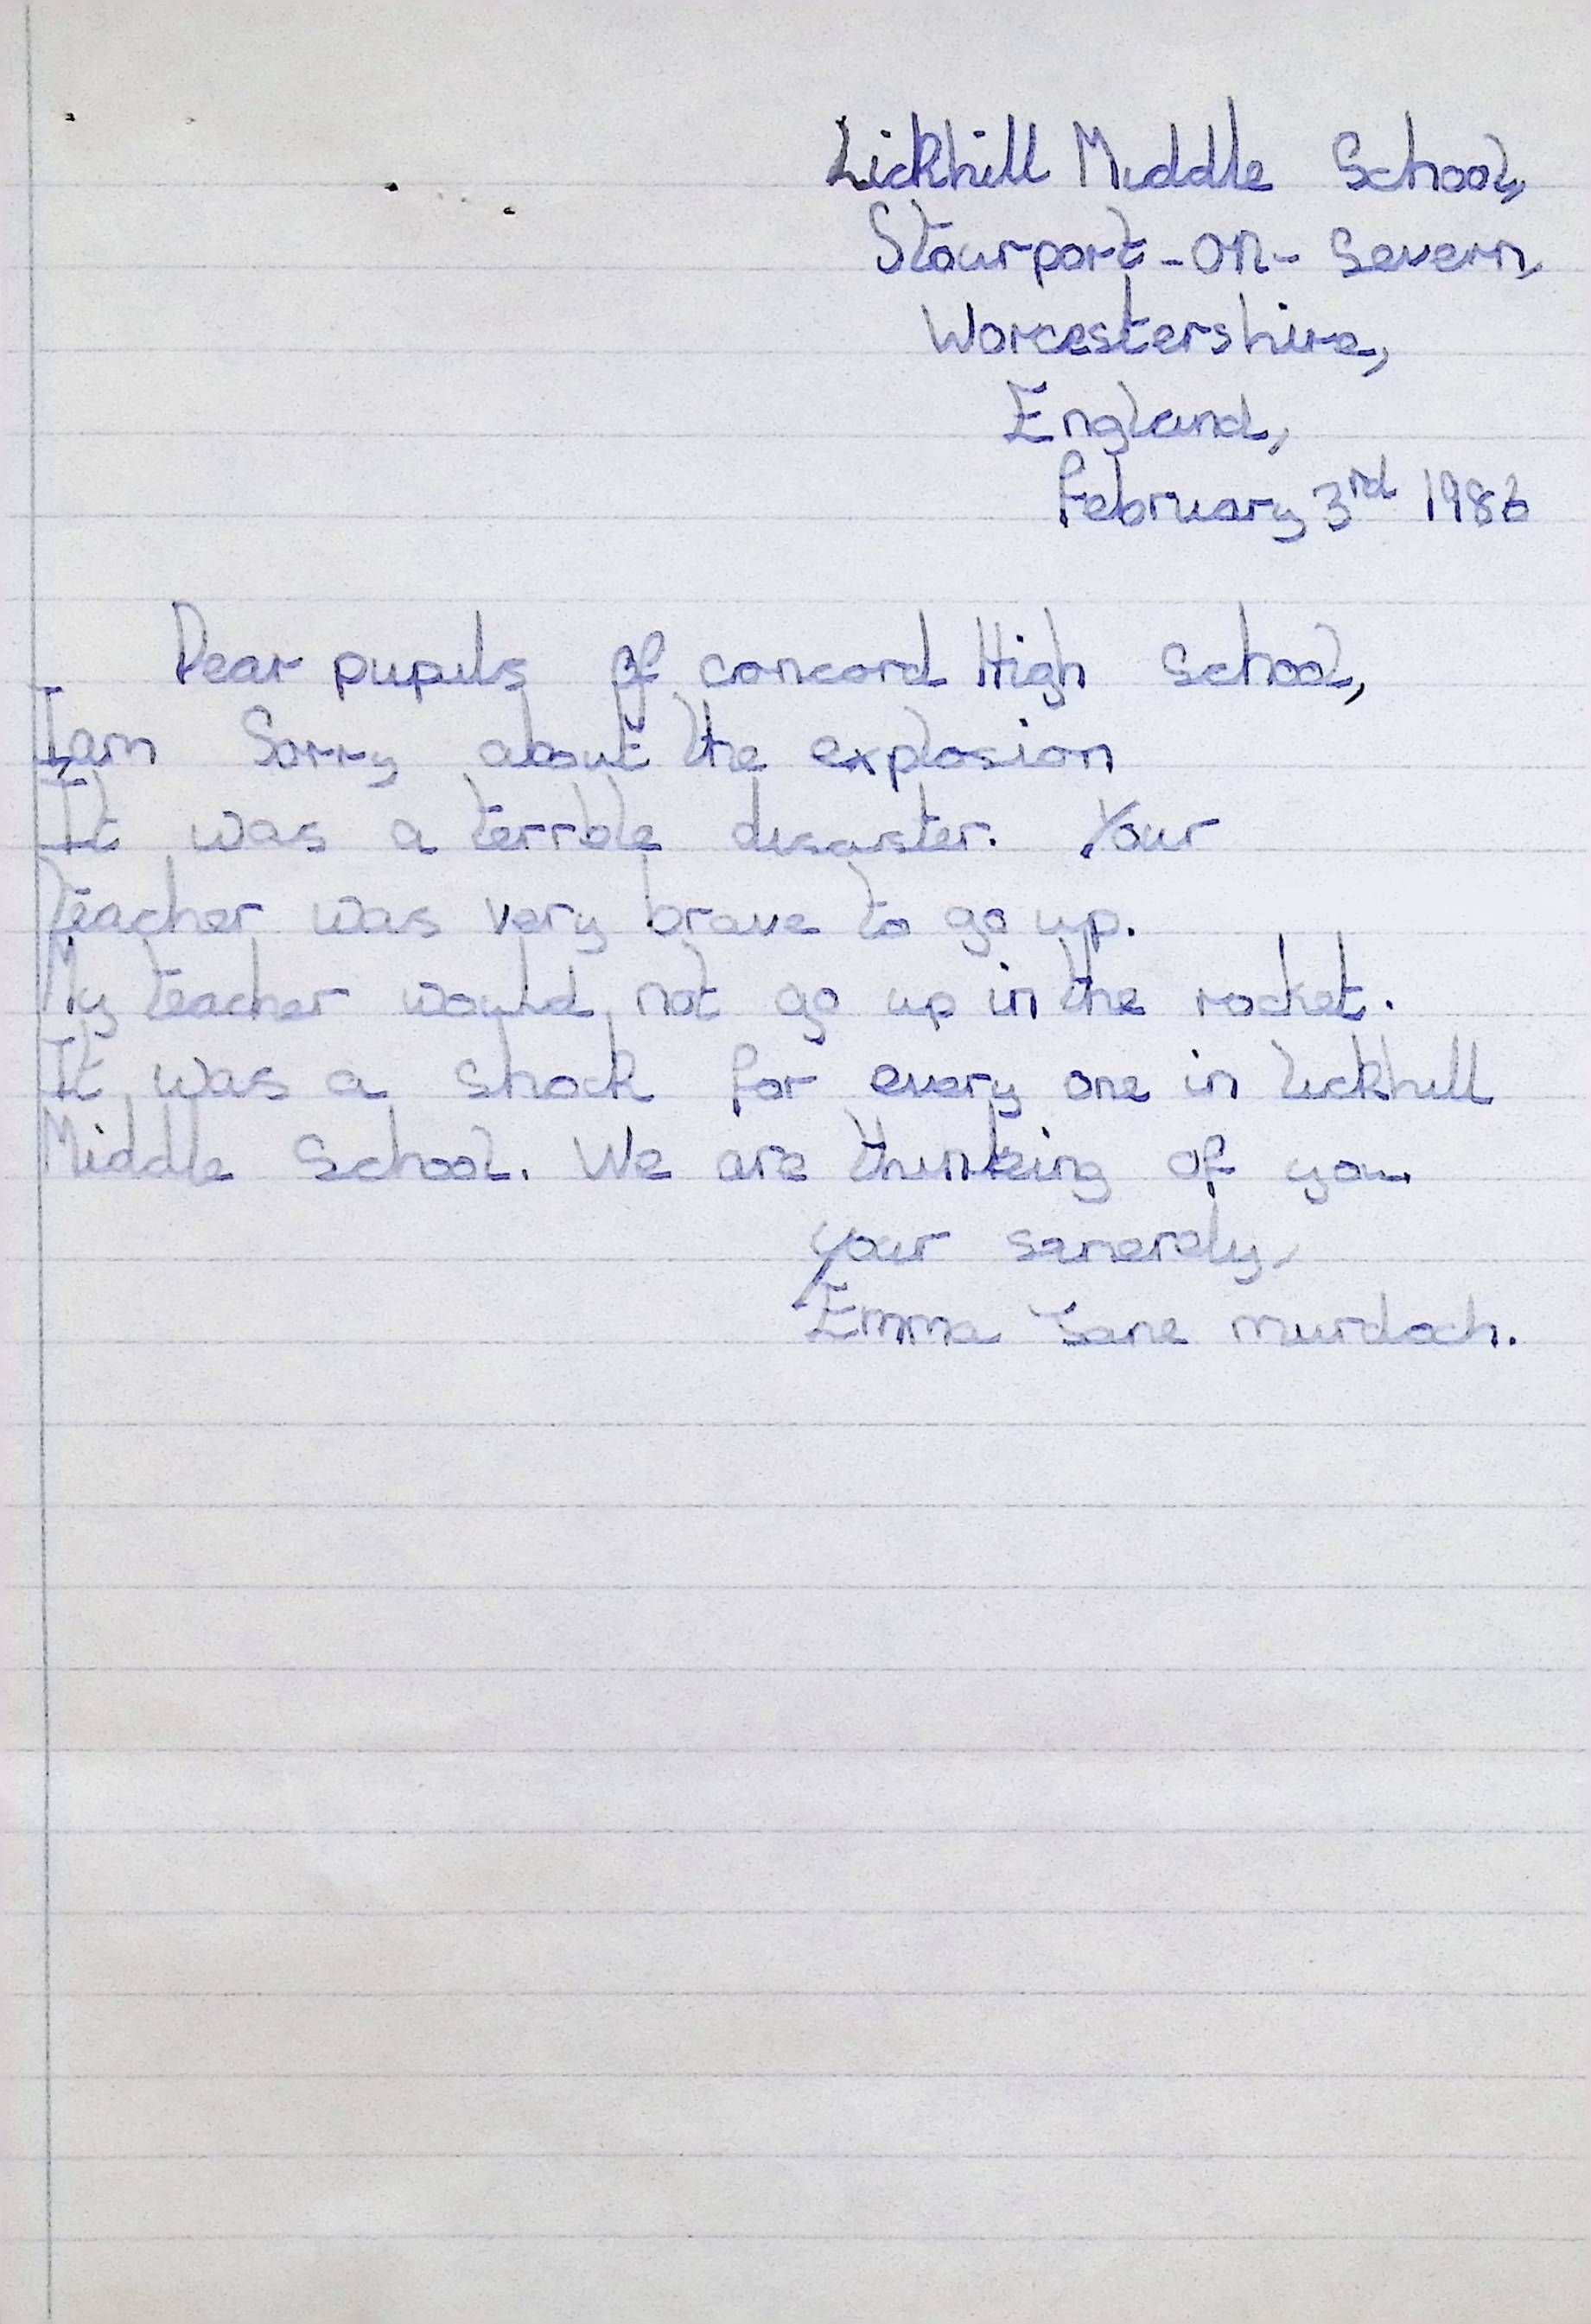 Lickhill Middle School,
Stourport-on-Severn,
Worcestershire,
England,
February 3rd 1986
Dear pupils of concord High School,
I am Sorry about the explosion
It was a terrble disaster. Your
teacher was very brave to go up.
My teacher would not go up in the rocket.
It was a shock for every one in Lickhill
Middle School. We are thinking of you.
your sanerely,
Emma Jane murdoch.